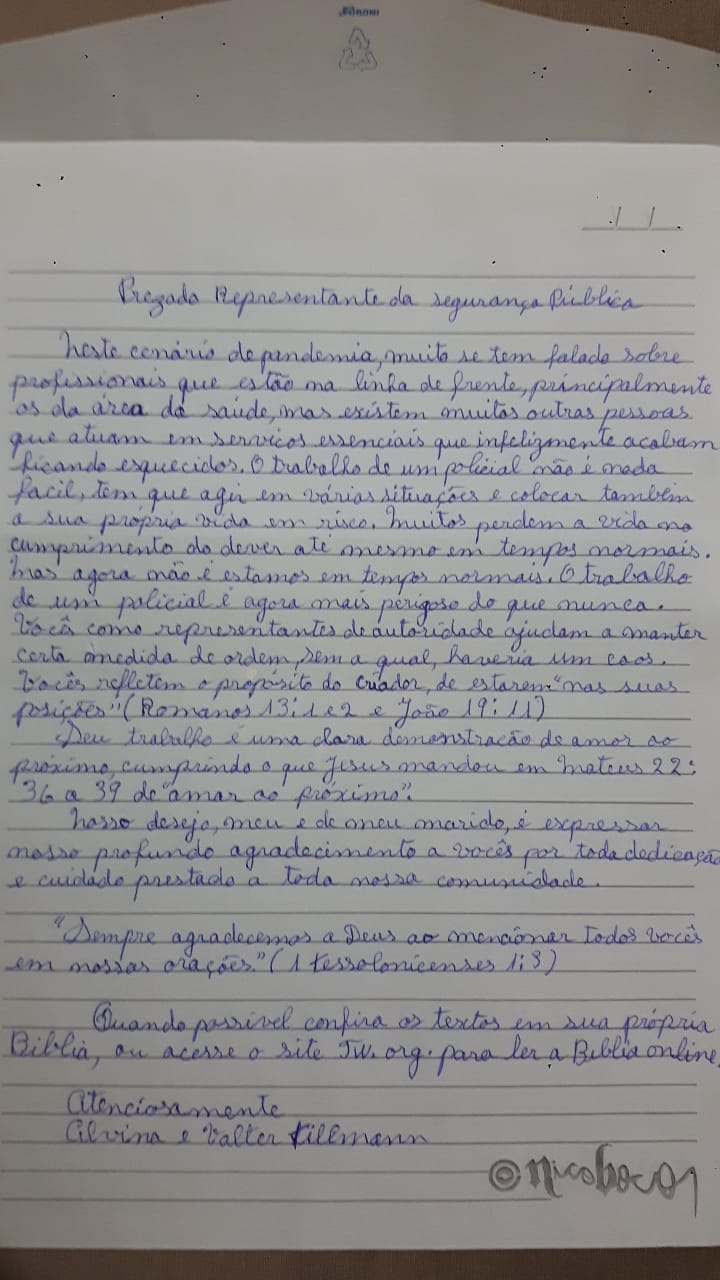 / /
Prezado Representante da segurança Pública
Neste cenário de pandemia, muito se tem falado sobre
profissionais que estão na linha de frente, principalmente
os da área da saúde, mas existem muitas outras pessoas
que atuam em serviços essenciais que infelizmente acabam
ficando esquecidos. O trabalho de um policial não é nada
facil, tem que agir em várias situações e colocar também
a sua própria vida em risco. Muitos perdem a vida no
cumprimento do dever até mesmo em tempos normais.
Mas agora não é estamos em tempos normais. O trabalho
de um policial é agora mais perigoso do que nunca.
Vocês como representantes de autoridade ajudam a manter
certa medida de ordem, sem a qual, haveria um caos.
Vocês refletem o propósito do Criador, de estarem "nas suas
posições" (Romanos 13:1 e 2 e João 19:11)
Seu trabalho é uma clara demonstração de amor ao
próximo, cumprindo o que Jesus mandou em Mateus 22:
36 a 39 de "amar ao próximo".
Nosso desejo, meu e de meu marido, é expressar
nosso profundo agradecimento a vocês por toda dedicação
e cuidado prestado a toda nossa comunidade.
"Sempre agradecemos a Deus ao mencionar todos vocês
em nossas orações." (1 Tessolonicenses 1:3)
Quando possivel confira os textos em sua própria
Biblia, ou acesse o site JW.org. para ler a Biblia online.
Atenciosamente
Alvina e Valter Tillmann
@nicoboco1